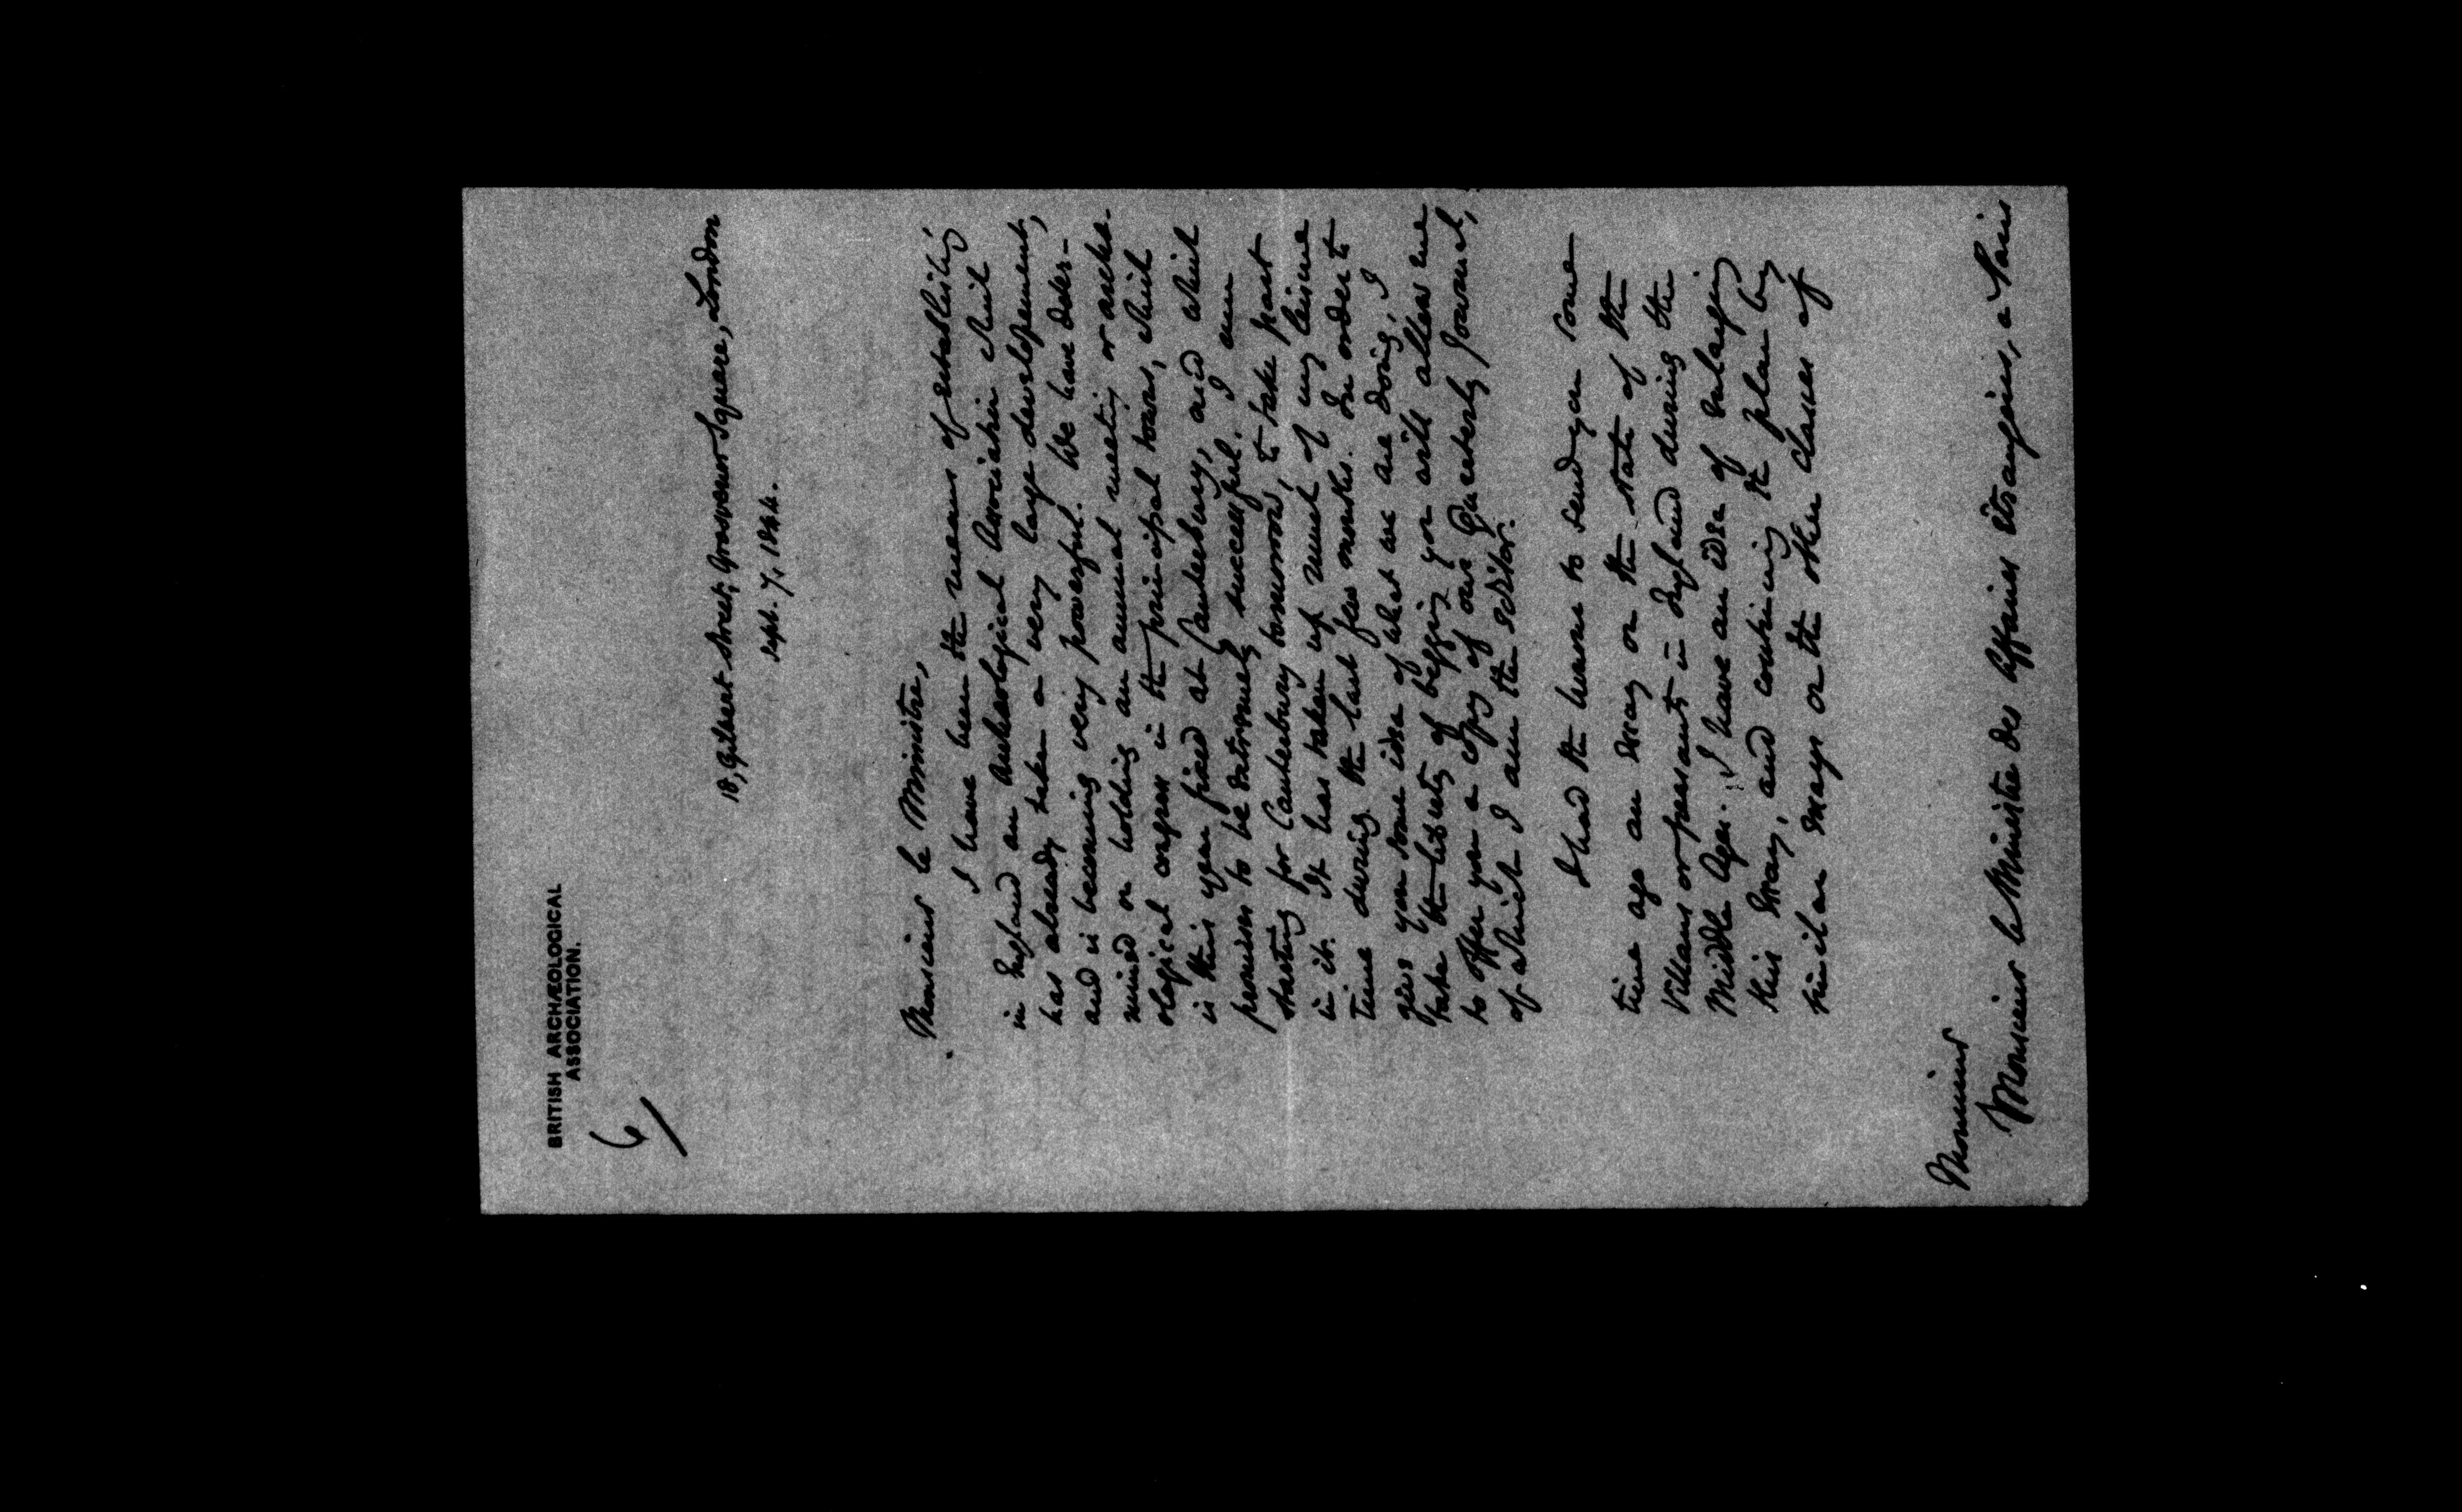 BRITISH ARCHÆOLOGICAL
ASSOCIATION.
6/
18, Gilbert Street, Grosvenor Square, London
Sept. 7, 1844.
Monsieur le Ministre,
I have been the means of establishing
in England an archæological Association which
has already taken a very large developement,
and is becoming very powerful. We have deter-
mined on holding an annual meeting or archæ-
ological congress in the principal towns, which
is this year fixed at Canterbury, and which
promises to be extremely successful. I am
starting for Canterbury tomorrow, to take part
in it. It has taken up much of my leisure
time during the last few months. In order to
give you some idea of what we are doing, I
take the liberty of begging you will allow me
to offer you a copy of our Quarterly Journal,
of which I am the editor.
I had the honour to send you some
time ago an essay on the state of the
Villans or peasants in England during the
Middle Ages. I have an idea of enlarging
this essay, and continuing the plan by
similar essays on the other classes of
Monsieur
Monsieur le Ministre des Affaires Etrangères, a Paris